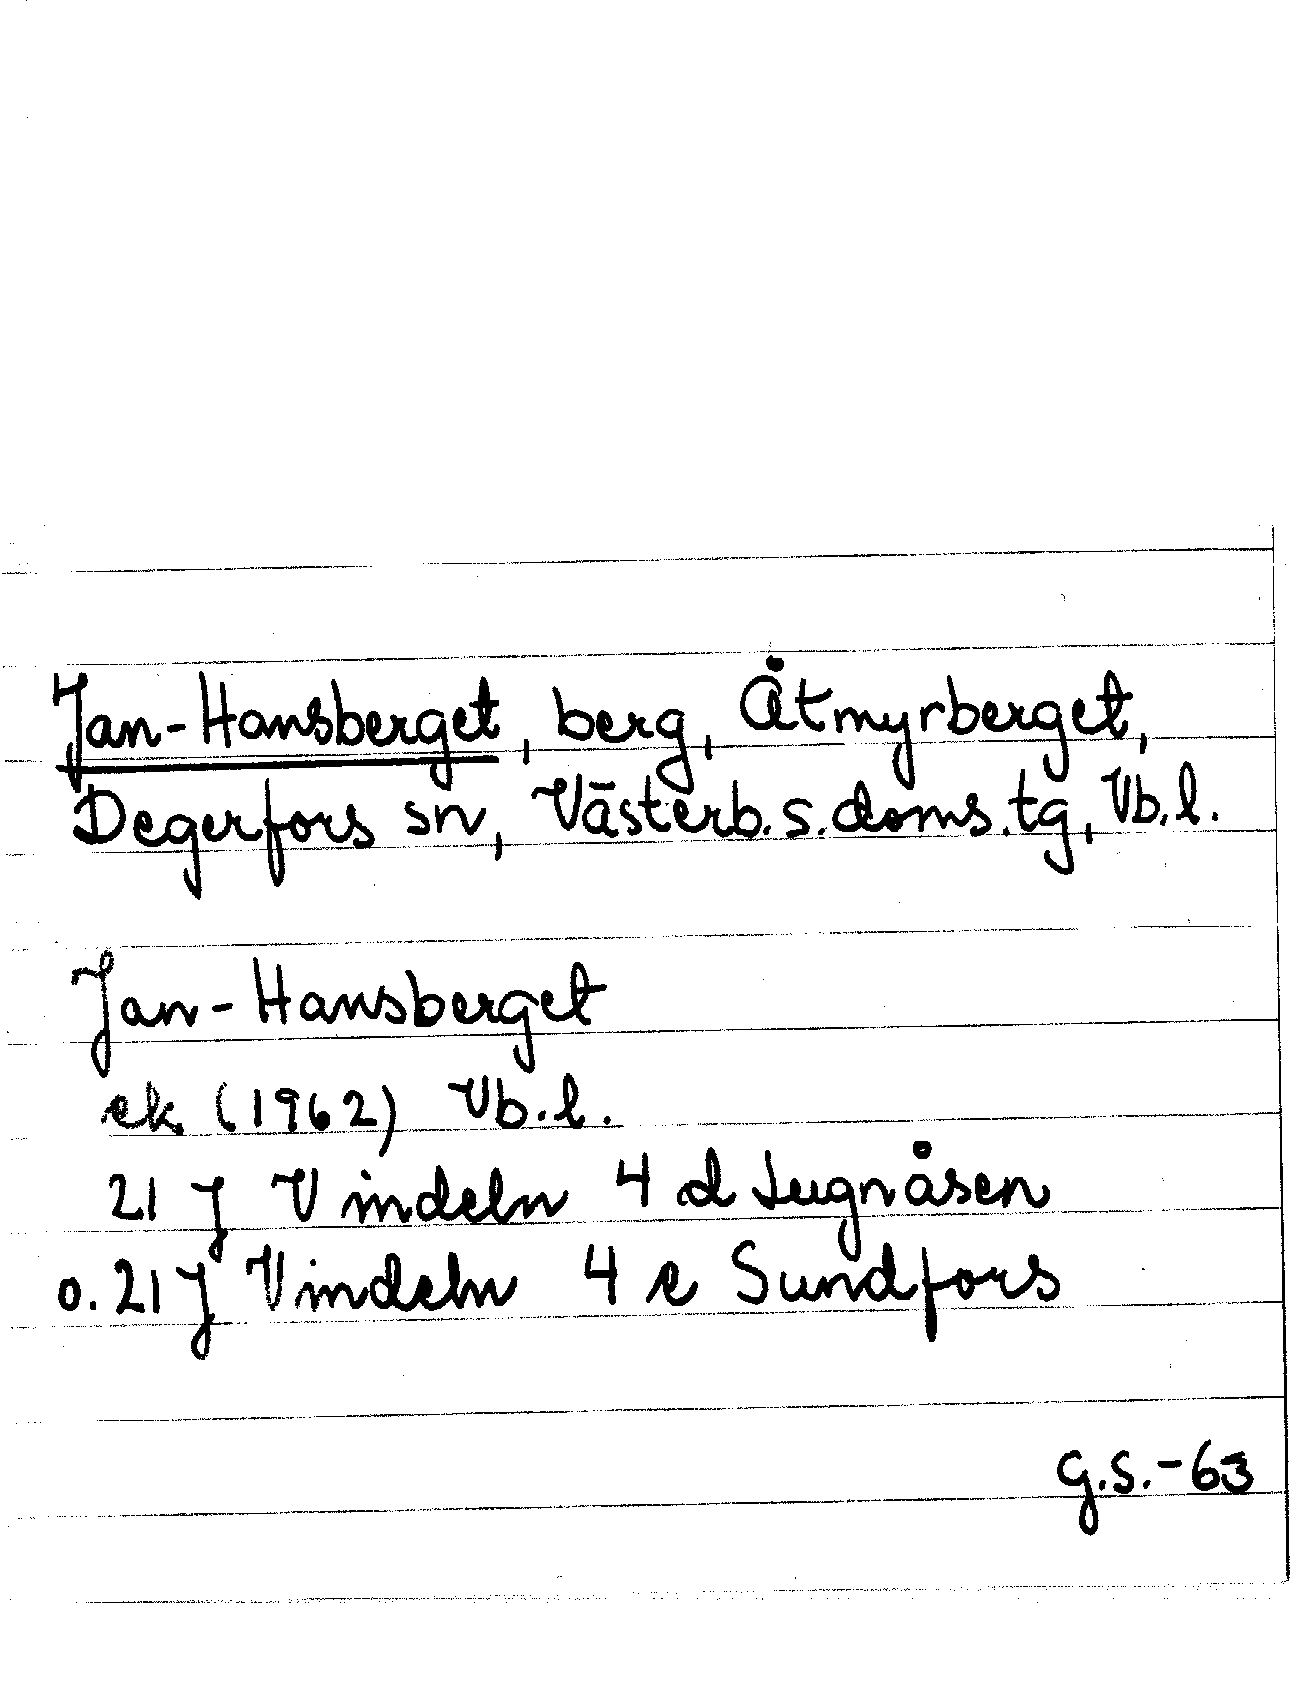 Jan-Hansberget, berg, Åtmyrberget,
Degerfors sn, Västerb.s.doms.tg, Vb.l.
Jan-Hansberget
ek. (1962) Vb.l.
21 J Vindeln 4 d Lugnåsen
o. 21 J Vindeln 4 e Sundfors
G.S.-63